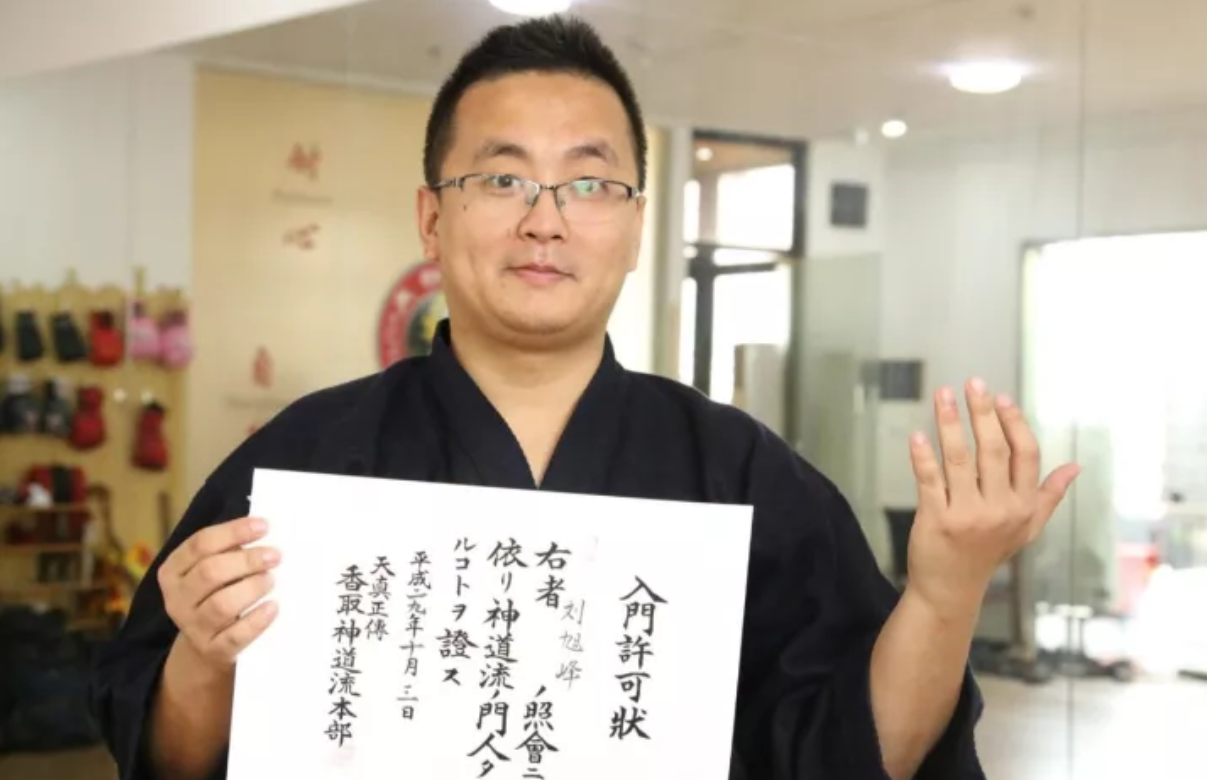 入門許可狀
右者刘旭峰ノ照會ニ
依リ神道流ノ門人タ
ルコトヲ證ス
平成二九年十月三日
天真正傳
香取神道流本部